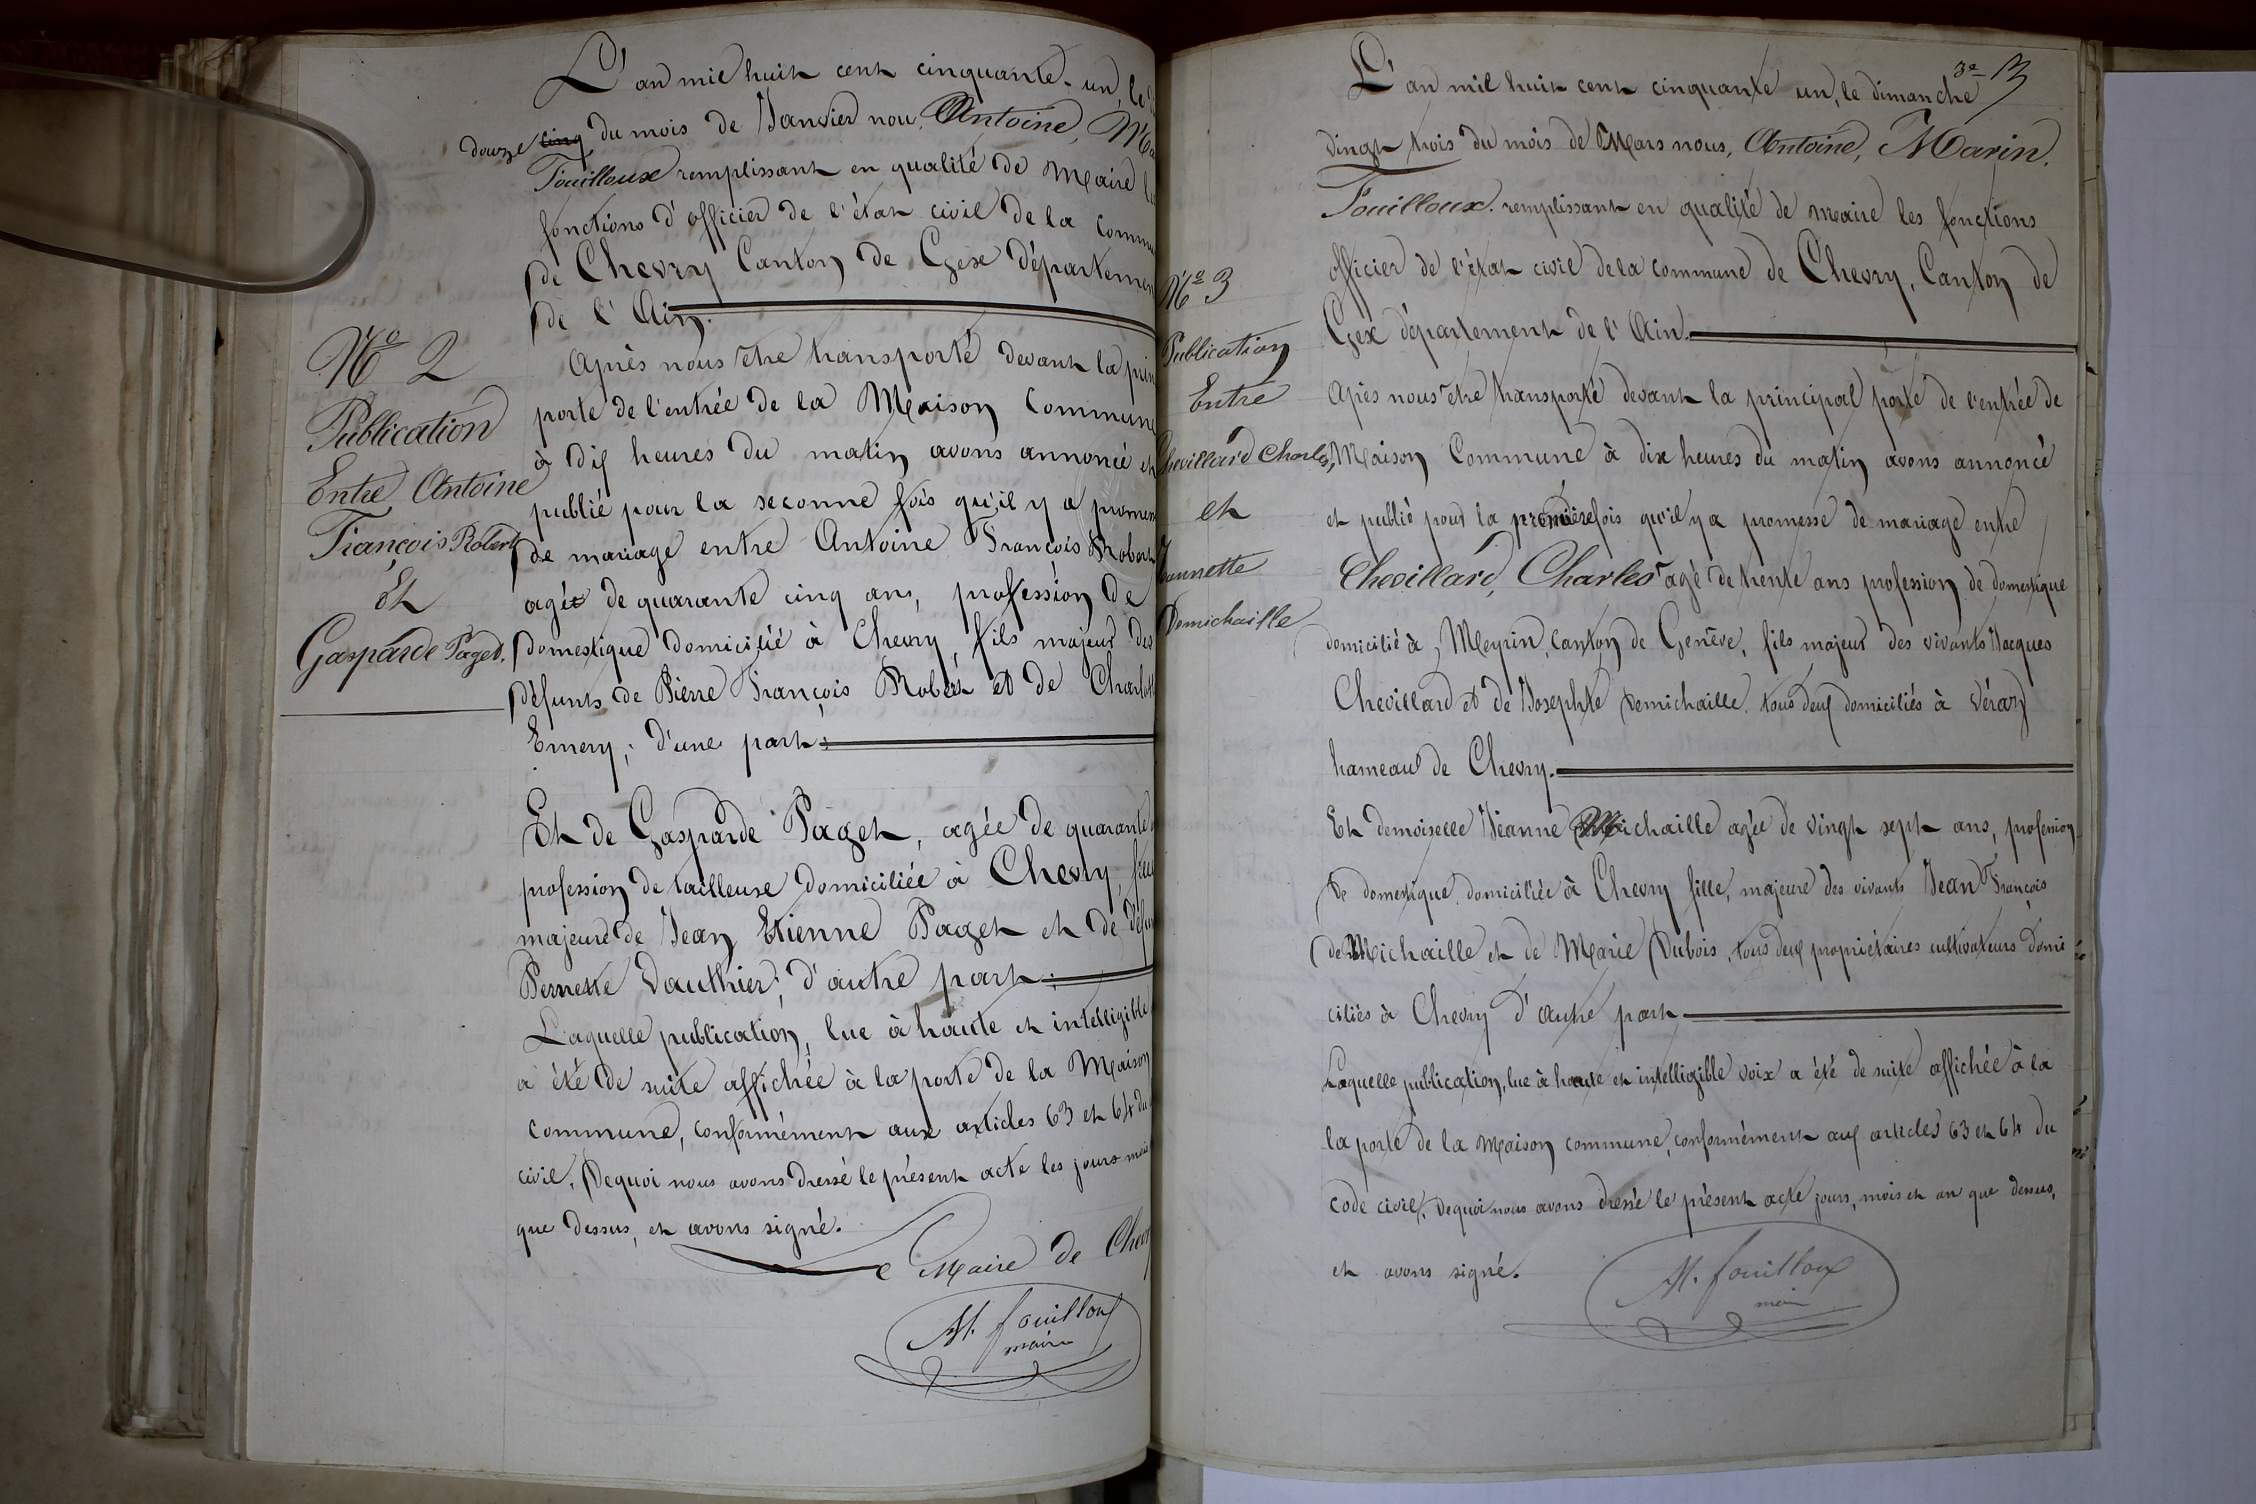 L'an mil huit cent cinquante-un, le
douze cinq du mois de Janvier nou, Antoine, Ma
Fouilloux remplissant en qualité de Maire l
fonctions d'officier de l'état civil de la commu
de Chevry Canton de Gex départemen
de l'Ain.
Nº 2
Publication
Entre Antoine
François Robert
Et
Gasparde Paget.
Après nous être transporté devant la prin
porte de l'entrée de la Maison Commune
à dix heures du matin avons annoncé et
publié pour la seconne fois qu'il y a promes
de mariage entre Antoine François Robert
agé de quarante cinq ans, proffession de
domestique domicilié à Chevry, fils majeur des
défunts de Pierre François Robert et de Charlott
Emery; d'une part;
Et de Gasparde Paget, agée de quarante
profession de tailleuse domiciliée à Chevry, fille
majeure de Jean Etienne Paget et de défu
Pernette Vauthier; d'autre part;
Laquelle publication, lue à haute et intelligible
a été de suite affichée à la porte de la Maison
commune, conformément aux articles 63 et 64 du
civil, Dequoi nous avons dressé le présent acte les jours mois
que dessus, et avons signé.
Le Maire de Chevry
M. fouilloux
maire
3e 3
L'an mil huit cent cinquante un, le dimanche
vingt trois du mois de Mars nous, Antoine, Marin.
Fouilloux. remplissant en qualité de maire les fonctions
officier de l'état civil de la commune de Chevry, Canton de
Gex département de l'Ain.
Nº 3
Publication
Entre
Chevillard Charles,
et
Jeannette
Demichaille
Après nous être transporté devant la principal porte de l'entrée de
Maison Commune à dix heures du matin avons annoncé
et publié pour la première fois qu'il y a promesse de mariage entre
Chevillard, Charles agé de trente ans profession de domestique
domicilié à Meyrin, canton de Genève, fils majeur des vivants Jacques
Chevillard et de Josephte Demichaille. tous deux domiciliés à Véraz
hameau de Chevry.
Et demoiselle Jeanne Michaille agée de vingt sept ans, profession
de domestique domiciliée à Chevry fille, majeure des vivants Jean François
de Michaille et de Marie Dubois, tous deux propriétaires cultivateurs domi
ciliés à Chevry d'autre part
Laquelle publication, lue à haute et intelligible voix a été de suite affichée à la
la porte de la Maison commune, conformément aux articles 63 et 64 du
code civil, Dequoi nous avons dressé le présent acte jours, mois et an que dessus,
et avons signé.
M. fouilloux
maire